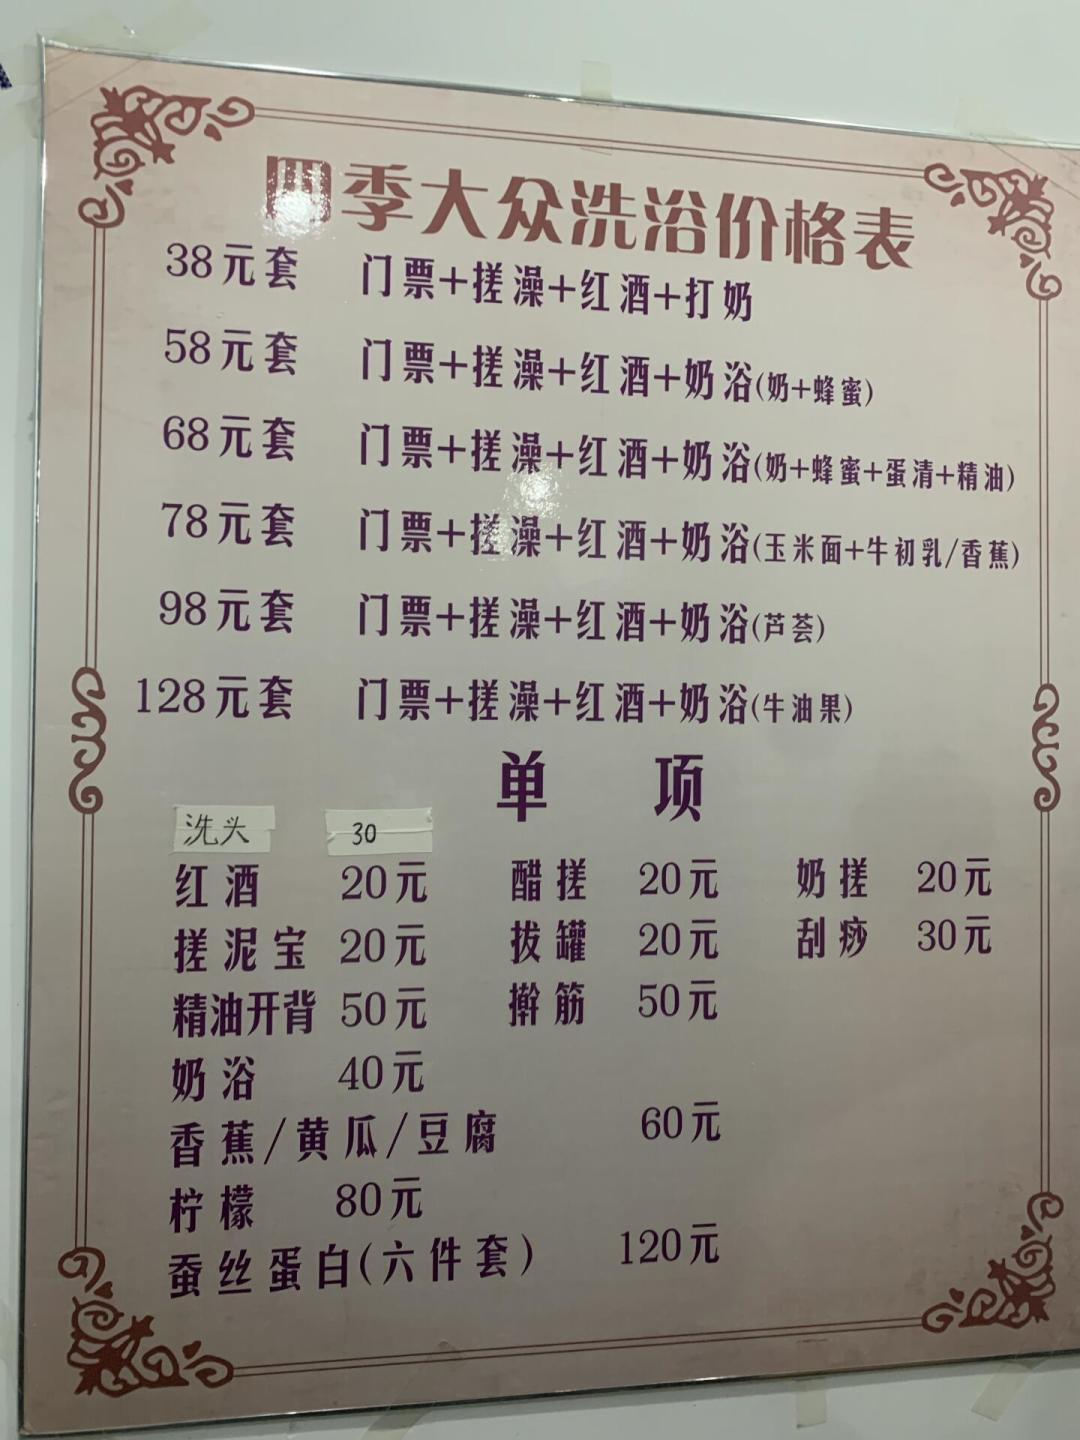 四季大众洗浴价格表
38元套 门票+搓澡+红酒+打奶
58元套 门票+搓澡+红酒+奶浴(奶+蜂蜜)
68元套 门票+搓澡+红酒+奶浴(奶+蜂蜜+蛋清+精油)
78元套 门票+搓澡+红酒+奶浴(玉米面+牛初乳/香蕉)
98元套 门票+搓澡+红酒+奶浴(芦荟)
128元套 门票+搓澡+红酒+奶浴(牛油果)
单 项
洗头 30
红酒 20元 醋搓 20元 奶搓 20元
搓泥宝 20元 拔罐 20元 刮痧 30元
精油开背 50元 擀筋 50元
奶浴 40元
香蕉/黄瓜/豆腐 60元
柠檬 80元
蚕丝蛋白(六件套) 120元